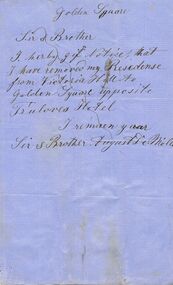 Golden Square
Sir & Brother
I herby gif Notise, that
I have removed my Residense
from Victoria Hill to
Golden Square opposite
Trulovea Hotel
I remaen your
Sir & Brother August